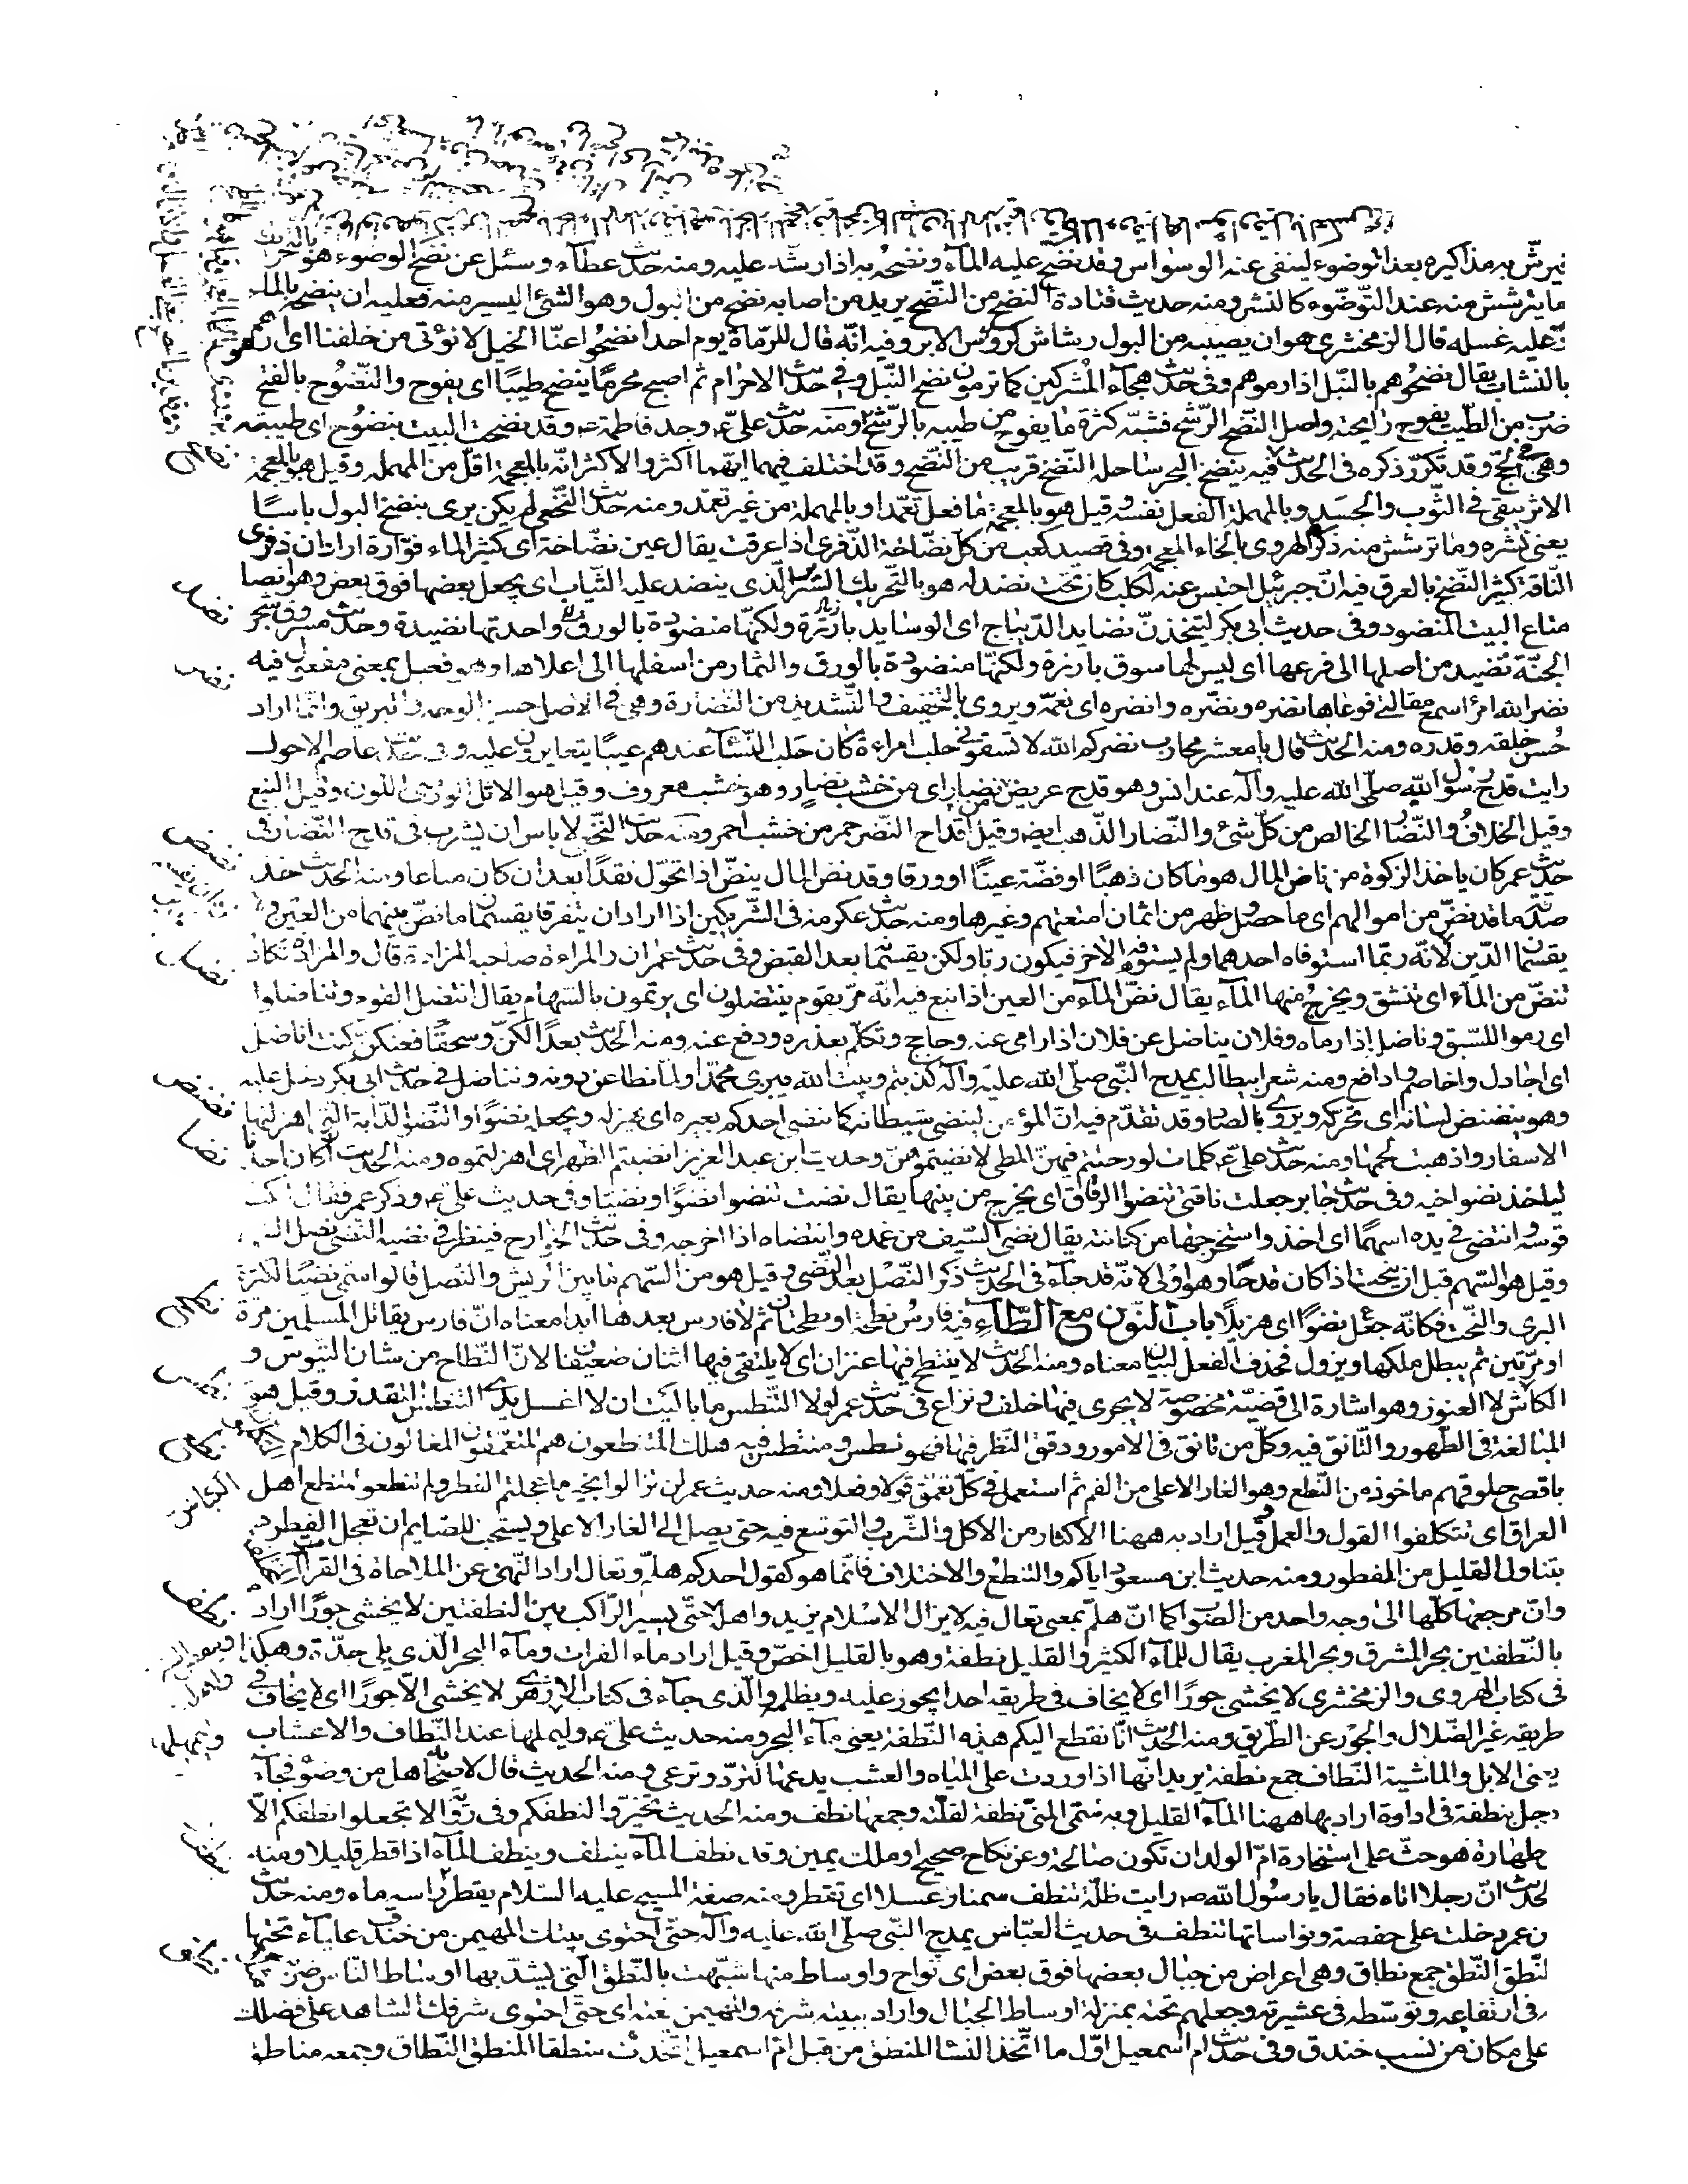 فيرشّ به مذاكيره بعد الوضوء لينفى عنه الوسواس وقد نضح عليه الماء ونضحه به اذا رشه عليه ومنه حديث عطاء وسئل عن نضح الوضوء هو بالتحريك
ما يترشش منه عند التوضّوء كالنشر ومنه حديث قتادة النضح من النّضح يريد من اصابه نضح من البول وهو الشئ اليسير منه فعليه ان ينضحه بالماء
عليه غسله قال الزمخشرى هو ان يصيبه من البول رشاش كرؤس الابر وفيه انّه قال للرّماة يوم احد انضحوا عنّا الخيل لا نؤتى من خلفنا اى
بالنشاب يقال نضحوهم بالنّبل اذا رموهم وفى حديث هجاء المشركين كما ترمون نضح النّبل وفى حديث الاحرام ثم اصبح محرمًا ينضح طيبًا اى يفوح والنّضوح بالفتح
ضرب من الطّيب يفوح رايحته واصل النّضح الرّشح فشبّه كثرة ما يفوح من طيبه بالرّشح ومنه حديث علىّ وجد فاطمة وقد نضحت البيت بنضوح اى طيبته
وهى فى الحجّ وقد تكرّر ذكره فى الحديث فيه ينضخ البحر ساحله النّضخ قريب من النّضح وقد اختلف فيهما ايّهما اكثر والاكثر انّه بالمعجمة اقلّ من المهملة وقيل هو بالمعجمة
الاثر يبقى فى الثّوب والجسد وبالمهملة الفعل نفسه وقيل هو بالمعجمة ما فعل تعمّدا وبالمهملة من غير تعمّد ومنه حديث النّخعى لم يكن يرى بنضخ البول باسًا
يعنى نشره وما ترشش منه ذكره الهروى بالخاء المعجمة وفى قصيد كعب من كلّ نضّاخة الذّفرى اذا عرقت يقال عين نضّاخة اى كثير الماء فوّارة اراد ان ذفرى
النّاقة كثير النّضخ بالعرق فيه انّ جبرئيل احتبس عنه لكلب كان تحت نضد له هو بالتّحريك السّرير الّذى ينضد عليه الثّياب اى يجعل بعضها فوق بعض وهو ايضا
متاع البيت المنضود وفى حديث ابى بكر لتتخذنّ نضايد الدّيباج اى الوسايد واحدتها نضيدة وحديث مسروق شجر
الجنّة نضيد من اصلها الى فرعها اى ليس لها سوق بارزة ولكنّها منضودة بالورق والثمار من اسفلها الى اعلاها وهو فعيل بمعنى مفعول فيه
نضر الله امرأ سمع مقالتى فوعاها نضره ونضّره وانضره اى نعّمه ويروى بالتخفيف والتّشديد من النّضارة وهى فى الاصل حسن الوجه والبريق وانّما اراد
حسن خلقه وقدره ومنه الحديث قال يا معشر محارب نضركم الله لا تسقونى حلب امراة كان حلب النّساء عندهم عيبًا يتعايرون عليه وفى حديث عاصم الاحول
رايت قدح رسول الله صلّى الله عليه وآله عند انس وهو قدح عريض من نضار اى من خشب نضار وهو خشب معروف وقيل هو الاثل الورسى اللون وقيل النبع
وقيل الخلاف والنّضار الخالص من كلّ شئ والنّضار الذّهب ايضا وقيل اقداح النّضر حمر من خشب احمر ومنه حديث النّخعى لا باس ان يشرب فى قدح النّضار فى
حديث عمر كان ياخذ الزكوة من ناضّ المال هو ما كان ذهبًا او فضّة عينًا او ورقا وقد نضّ المال ينضّ اذا تحوّل نقدًا بعد ان كان متاعا ومنه الحديث خذ
صدقة ما قد نضّ من اموالهم اى ما حصل وظهر من اثمان امتعتهم وغيرها ومنه حديث عكرمة فى الشّريكين اذا ارادا ان يتفرقا يقسمان ما نضّ بينهما من العين ولا
يقسمان الدّين لانّه ربّما استوفاه احدهما ولم يستوفه الاخر فيكون ربًا ولكن يقسمانه بعد القبض وفى حديث عمران والمراة صاحبة المزادة قال والمزادة تكاد
تنضّ من الماء اى تنشق ويخرج منها الماء يقال نضّ الماء من العين اذا نبع فيه انّه مرّ بقوم ينتضلون اى يرتمون بالسّهام يقال انتضل القوم وتناضلوا
اى رموا للسّبق وناضله اذا رماه وفلان يناضل عن فلان اذا رامى عنه وحاجج وتكلّم بعذره ودفع عنه ومنه الحديث بعدًا لكنّ وسحقًا فعنكنّ كنت اناضل
اى اجادل واخاصم وادافع ومنه شعر ابيطالب يمدح النّبى صلّى الله عليه وآله كذبتم وبيت الله يبزى محمّد ولمّا نطاعن دونه ونناضل فى حديث ابى بكر دخل عليه
وهو ينضنض لسانه اى يحرّكه ويروى بالصاد وقد تقدّم فيه انّ المؤمن لينضى شيطانه كما ينضى احدكم بعيره اى يهزله ويجعله نضوًا والنّضو الدّابة الّتى اهزلتها
الاسفار واذهبت لحمها ومنه حديث علىّ كلمات لو رحلتم فيهنّ المطى لانضيتموهنّ وحديث ابن عبد العزيز انضيتم الظهر اى اهزلتموه ومنه الحديث ان كان احدنا
لياخذ نضو اخيه وفى حديث جابر جعلت ناقتى تنضو الرّفاق اى يخرج من بينها يقال نضت تنضو نضوًا ونضيّا وفى حديث علىّ وذكر عمر فقال
قوسه وانتضى فى يده اسهمًا اى اخذ واستخرجها من كنانته يقال نضى السّيف من غمده وانتضاه اذا اخرجه وفى حديث الخوارج فينظر فى نضيه النّضى نصل السهم
وقيل هو السّهم قبل ان ينحت اذا كان قدحًا وهو اولى لانّه قد جاء فى الحديث ذكر النّصل بعد النّضى وقيل هو من السّهم ما بين الرّيش والنّصل قالوا سمّى نضيًّا لكثرة
البرى والنّحت فكانّه جعل نضوًا اى هزيلًا باب النّون مع الطّاء فيه فارس نطحة او نطحتان ثم لا فارس بعدها ابدا معناه انّ فارس يقاتل المسلمين مرّة
او مرّتين ثم يبطل ملكها ويزول فحذف الفعل لبيان معناه ومنه الحديث لا ينتطح فيها عنزان اى لا يلتقى فيها اثنان ضعيفان لانّ النّطاح من شان التّيوس و
الكباش لا العنوز وهو اشارة الى قضيّة مخصوصة لا يجرى فيها خلف ونزاع فى حديث عمر لولا التّنطس ما باليت ان لا اغسل يدى التنطس التقذر وقيل هو
المبالغة فى الطّهور والتّانّق فيه وكلّ من تانّق فى الامور ودقق النّظر فيها فهو نطس ومتنطّس فيه هلك المتنطعون هم المتعمّقون المغالون فى الكلام
باقصى حلوقهم ماخوذ من النّطع وهو الغار الاعلى من الفم ثم استعمل فى كلّ تعمّق قولا وفعلا ومنه حديث عمر لن تزالوا بخير ما عجلتم الفطر ولم تنطعوا تنطع اهل
العراق اى تتكلفوا القول والعمل وقيل اراد به ههنا الاكثار من الاكل والشّرب والتوسّع فيه حتى يصل الى الغار الاعلى ويستحبّ للصّايم ان تعجل الفطر
بتناول القليل من الفطور ومنه حديث ابن مسعود ايّاكم والتنطع والاختلاف فانّما هو كقول احدكم هلمّ وتعال اراد النّهى عن الملاحاة فى القراءة
وانّ مرجعها كلّها الى وجه واحد من الصّواب كما انّ هلمّ بمعنى تعال فيه لا يزال الاسلام يزيد واهله حتّى يسير الرّاكب بين النطفتين لا يخشى جورًا اراد
بالنّطفتين بحر المشرق وبحر المغرب يقال للماء الكثير والقليل نطفة وهو بالقليل اخصّ وقيل اراد ماء الفرات وماء البحر الّذى يلى جدّة وهكذا
فى كتاب الهروى والزمخشرى لا يخشى جورًا اى لا يخاف فى طريقه احدا يجوز عليه ويظلمه والّذى جاء فى كتاب الازهرى لا يخشى الّا جورًا اى لا يخاف فى
طريقه غير الضّلال والجور عن الطّريق ومنه الحديث انّا نقطع اليكم هذه النّطفة يعنى ماء البحر ومنه حديث علىّ وليمهلها عند النّطاف والاعشاب
يعنى الابل والماشية النّطاف جمع نطفة يريد انّها اذا وردت على المياه والعشب يدعها لترد وترعى ومنه الحديث قال لاصحابه هل من وضوء فجاء
رجل بنطفة فى اداوة اراد بها ههنا الماء القليل وبه سمّى المنىّ نطفة لقلّته وجمعها نطف ومنه الحديث تخيّروا لنطفكم وفى رواية لا تجعلوا نطفكم الّا
طهارة هو حثّ على استخارة امّ الولد ان تكون صالحة وعن نكاح صحيح او ملك يمين وقد نطف الماء ينطف وينطف الماء اذا قطر قليلا ومنه
الحديث انّ رجلا اتاه فقال يا رسول الله رايت ظلّة تنطف سمنا وعسلا اى تقطر ومنه صفة المسيح عليه السّلام يقطر راسه ماء ومنه حديث
ابن عمر دخلت على حفصة ونواساتها تنطف فى حديث العبّاس يمدح النّبى صلّى الله عليه وآله حتّى احتوى بيتك المهيمن من خندف علياء تحتها
النّطق النّطق جمع نطاق وهى اعراض من جبال بعضها فوق بعض اى نواح واوساط منها شبّهت بالنّطق الّتى يشدّ بها اوساط النّاس ضرب
فى ارتفاعه وتوسّطه فى عشيرته وجعلهم تحته بمنزلة اوساط الجبال واراد ببيته شرفه والمهيمن نعته اى حتّى احتوى شرفك الشاهد على فضلك
على مكان من نسب خندف وفى حديث ام اسمعيل اوّل ما اتّخذ النّساء المنطق من قبل امّ اسمعيل اتّخذت منطقا المنطق النّطاق وجمعه مناطق
نضخ
نضد
نضر
نضض
نضل
نضنض
نضا
نطح
نطس
نطع
نطف
نطق